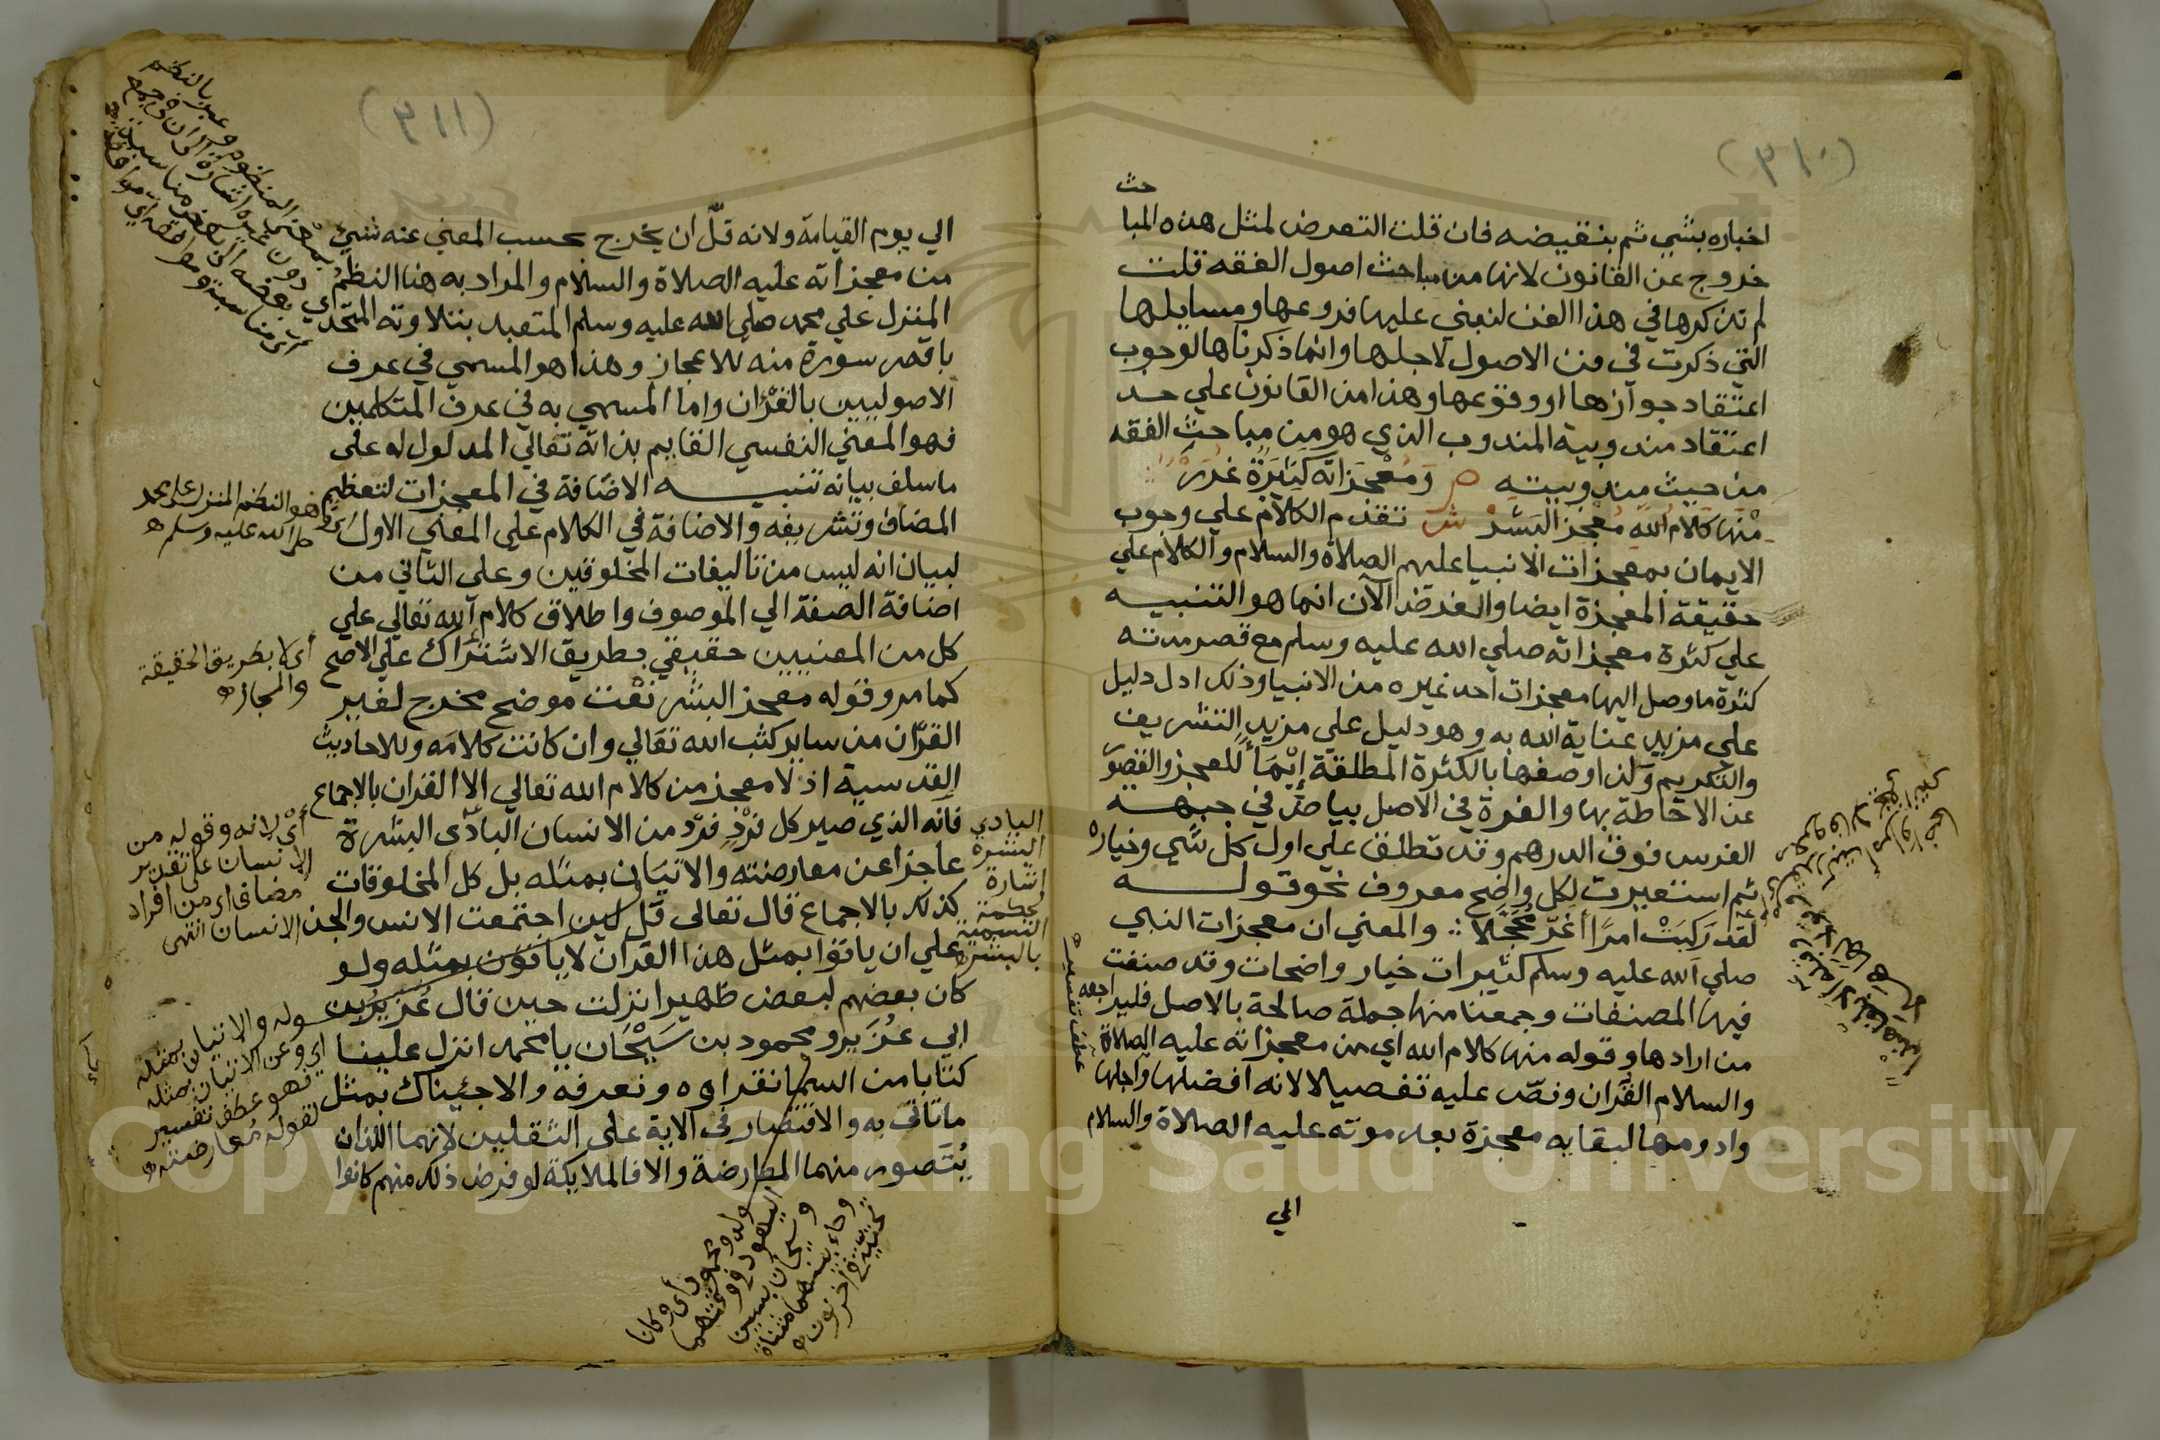 (٣١٠)
حث
اخباره بشي ثم بنقيضه فان قلت التعرض لمثل هذه المبا
خروج عن القانون لانها من مباحث اصول الفقه قلت
لم تذكرها في هذا الفن لنبني عليها فروعها ومسايلها
التي ذكرت في فن الاصول لاجلها وانما ذكرناها لوجوب
اعتقاد جوازها او وقوعها وهذا من القانون علي حد
اعتقاد مندوبية المندوب الذي هو من مباحث الفقه
من حيث مندوبيته ص وَمُعْجِزَاتُه كَثِيرَةٌ غُرَرْ
مِنْهَا كَلَامُ اللهِ مُعْجِزُ البَشَرْ ش تقدم الكلام علي وجوب
الايمان بمعجزات الانبيا عليهم الصلاة والسلام والكلام علي
حقيقة المعجزة ايضا والغرض الآن انما هو التنبيه
علي كثرة معجزاته صلي الله عليه وسلم مع قصر مدته
كثرة ما وصل اليها معجزات احد غيره من الانبيا وذلك ادل دليل
علي مزيد عناية الله به وهو دليل علي مزيد التشريف
والتكريم ولذا وصفها بالكثرة المطلقة إيْمَاً للعجز والقصور
عن الاحاطة بها والغرة في الاصل بياض في جبهة
الفرس فوق الدرهم وقد تطلق علي اول كل شي وخياره
ثم استعيرت لكل واضح معروف نحو قوله
لقد رَكِبَتْ امرًا أغَرَّ مُحَجَّلا ؞ والمعني ان معجزات النبي
صلي الله عليه وسلم كثيرات خيار واضحات وقد صنفت
فيها المصنفات وجمعنا منها جملة صالحة بالاصل فليراجعه
من ارادها وقوله منها كلام الله اي من معجزاته عليه الصلاة
والسلام القرآن ونصّ عليه تفصيلا لانه افضلها واجلها
وادومها لبقايه معجزة بعد موته عليه الصلاة والسلام
الي
عطف تفسير
(٣١١)
الي يوم القيامة ولانه قلّ ان يخرج بحسب المعني عنه شيئ
من معجزاته عليه الصلاة والسلام والمراد به هنا النظمُ
المنزل علي محمد صلي الله عليه وسلم المتعبد بتلاوته المتحدّي
باقصر سورة منه للاعجاز وهذا هو المسمي في عرف
الاصوليين بالقرْان واما المسمي به في عرف المتكلمين
فهو المعني النفسي القايم بذاته تعالي المدلول له علي
ما سلف بيانه تنبيه الاضافة في المعجزات لتعظيم
المضاف وتشريفه والاضافة في الكلام علي المعني الاول
لبيان انه ليس من تأليفات المخلوقين وعلي الثاني من
اضافة الصفة الي الموصوف واطلاق كلام الله تعالي علي
كل من المعنيين حقيقي بطريق الاشتراك علي الاصح
كما مر وقوله معجز البشر نعْت موضح مخرج لغير
القرّان من ساير كتب الله تعَالي وان كانت كلامَه وللاحاديث
القدسية اذ لا معجز من كلام الله تعالي الا القران بالاجماع
فانه الذي صير كل فرْدٍ فردٍ من الانسان البادّي البشرة
عاجزا عن معارضته والاتيان بمثله بل كل المخلوقات
كذلك بالاجماع قال تعالى قل لين اجتمعت الانس والجن
علي ان ياتوا بمثل هذا القران لا ياتون بمثله ولو
كان بعضهم لبعض ظهيرا نزلت حين قال عُزَيْرُبن
ابي عُزَير ومحمود بن سَيْحَان يا محمد انزل علينا
كتابا من السما نقراوه ونعرفه والا جئيناك بمثل
ما تاتي به والاقتصار في الاية علي الثقلين لانهما اللذان
يُتَصور منهما المعارضة والا فالملايكة لو فرض ذلك منهم كانوا
وهو النظم المنزل علي محمد
صلي الله عليه وسلم ه
أي لا بطريق الحقيقة
والمجاز ه
أيْ لانه وقوله من
الانسان علي تقدير
مضاف اي من افراد
الانسان انتهى
البادي
البشرة
اشارة
لحكمة
التسمية
بالبشر ه
قوله والاتيان بمثله
اي وعن الاتيان بمثله
فهو عطف تفسير
لقوله مُعارضته ه
Copyright © King Saud University